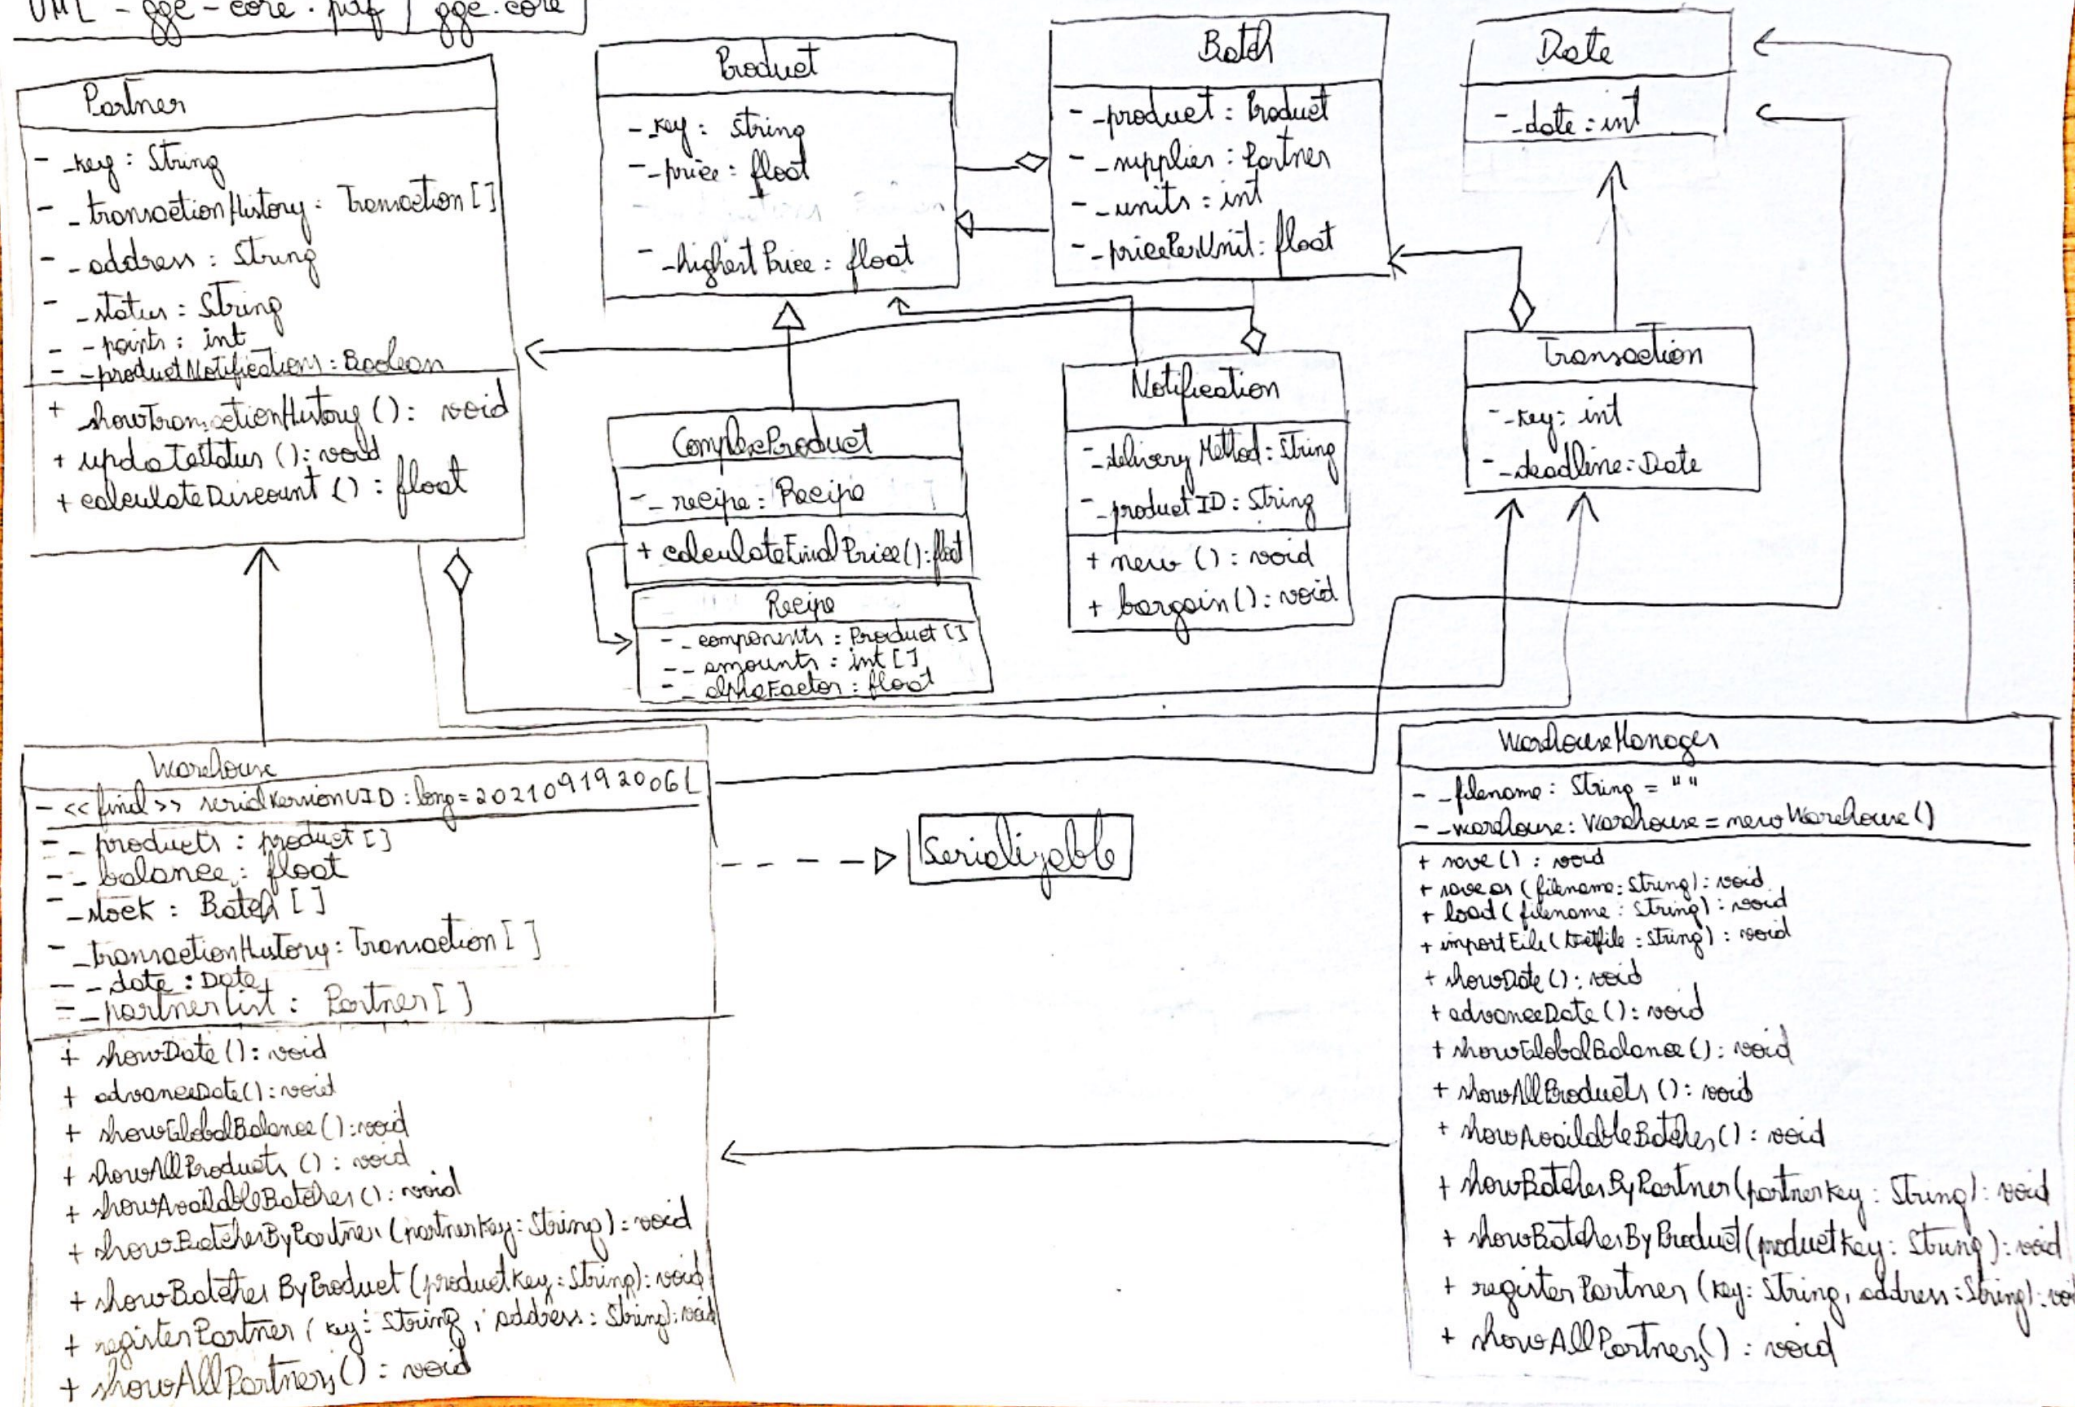 UML - gge - core . pdf | gge.core
Partner
- _key : String
- _transactionHistory : Transaction [ ]
- _address : String
- _status : String
- _points : int
- _productNotifications : Boolean
+ showTransactionHistory () : void
+ updateStatus () : void
+ calculateDiscount () : float
Product
- _key : String
- _price : float
- _highestPrice : float
Batch
- _product : Product
- _supplier : Partner
- _units : int
- _pricePerUnit : float
Date
- _date : int
ComplexProduct
- _recipe : Recipe
+ calculateFinalPrice () : float
Recipe
- _components : Product [ ]
- _amounts : int [ ]
- _alphaFactor : float
Notification
- _deliveryMethod : String
- _productID : String
+ new () : void
+ bargain () : void
Transaction
- _key : int
- _deadline : Date
Warehouse
- << final >> serialVersionUID : long = 202109192006L
- _products : product [ ]
- _balance : float
- _stock : Batch [ ]
- _transactionHistory : Transaction [ ]
- _date : Date
- _partnerList : Partner [ ]
+ showDate () : void
+ advanceDate () : void
+ showGlobalBalance () : void
+ showAllProducts () : void
+ showAvailableBatches () : void
+ showBatchesByPartner (partnerKey : String) : void
+ showBatchesByProduct (productKey : String) : void
+ registerPartner ( key : String , address : String) : void
+ showAllPartners () : void
Serializable
WarehouseManager
- _filename : String = " "
- _warehouse : Warehouse = new Warehouse ()
+ save () : void
+ save as (filename : String) : void
+ load ( filename : String) : void
+ importFile (textfile : String) : void
+ showDate () : void
+ advanceDate () : void
+ showGlobalBalance () : void
+ showAllProducts () : void
+ showAvailableBatches () : void
+ showBatchesByPartner (partnerKey : String) : void
+ showBatchesByProduct (productKey : String) : void
+ registerPartner (key : String, address : String) : voi
+ showAllPartners () : void